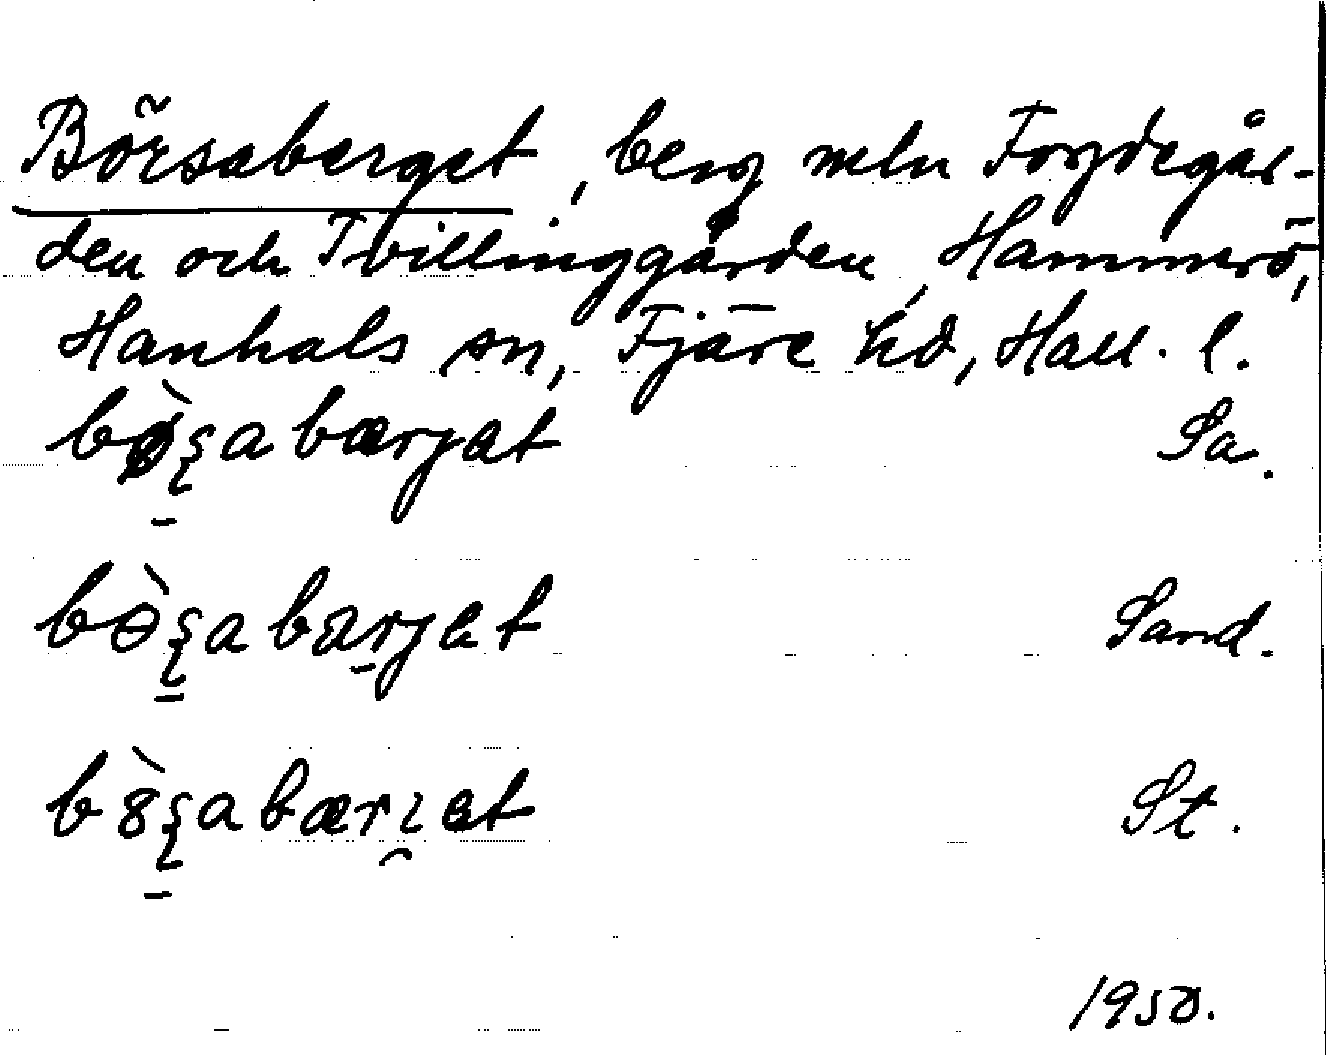 Börsaberget, berg mln Fogdegår-
den och Tvillinggården, Hammerö,
Hanhals sn, Fjäre hd, Hall. l.
bø̀ʂabærjət Sa.
bɵ̀ʂabærjət Sand.
b8̀ʂabærɩ̯ət St.
1950.